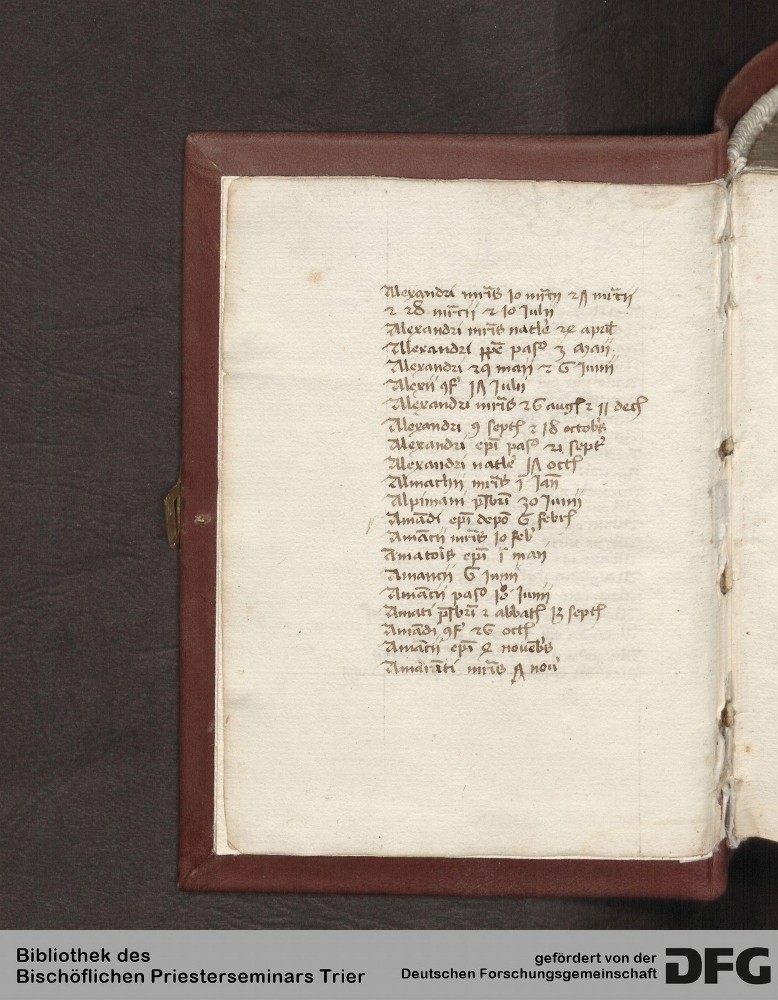 Alexandri mr̄is 10 mr̄cij 27 mr̄cij
⁊ 28 mr̄cij ⁊ 10 Julij
Alexandri mr̄is natl̓e 24 april
Alexandri pp̄e paſ° 3 maij
Alexandri 29 maij ⁊ 6 Junij
Alexii 9f̓ 17 Julij
Alexandri mr̄is 26 augſ ⁊ 11 dech
Alexandri 9 septh ⁊ 18 octobr̓s
Alexandri ep̄i paſ° 21 sept̓
Alexandri natl̓e 17 octh
Almachij mr̄is i Jan̄
Alpiniani p̄sbr̄i 30 Junij
Amādi ep̄i depō 6 febrh
Amācij mr̄is 10 feb̓
Amatōis ep̄i i maij
Amancij 6 Junij
Amācij paſ° 18 Junij
Amati p̄sbr̄i ⁊ abbatꝭ 13 septh
Amādi 9f̓ 26 octh
Amācij ep̄i 4 nouēbr̓s
Amarāti mr̄is 7 nou̓
Bibliothek des
Bischöflichen Priesterseminars Trier
gefördert von der
Deutschen Forschungsgemeinschaft
DFG